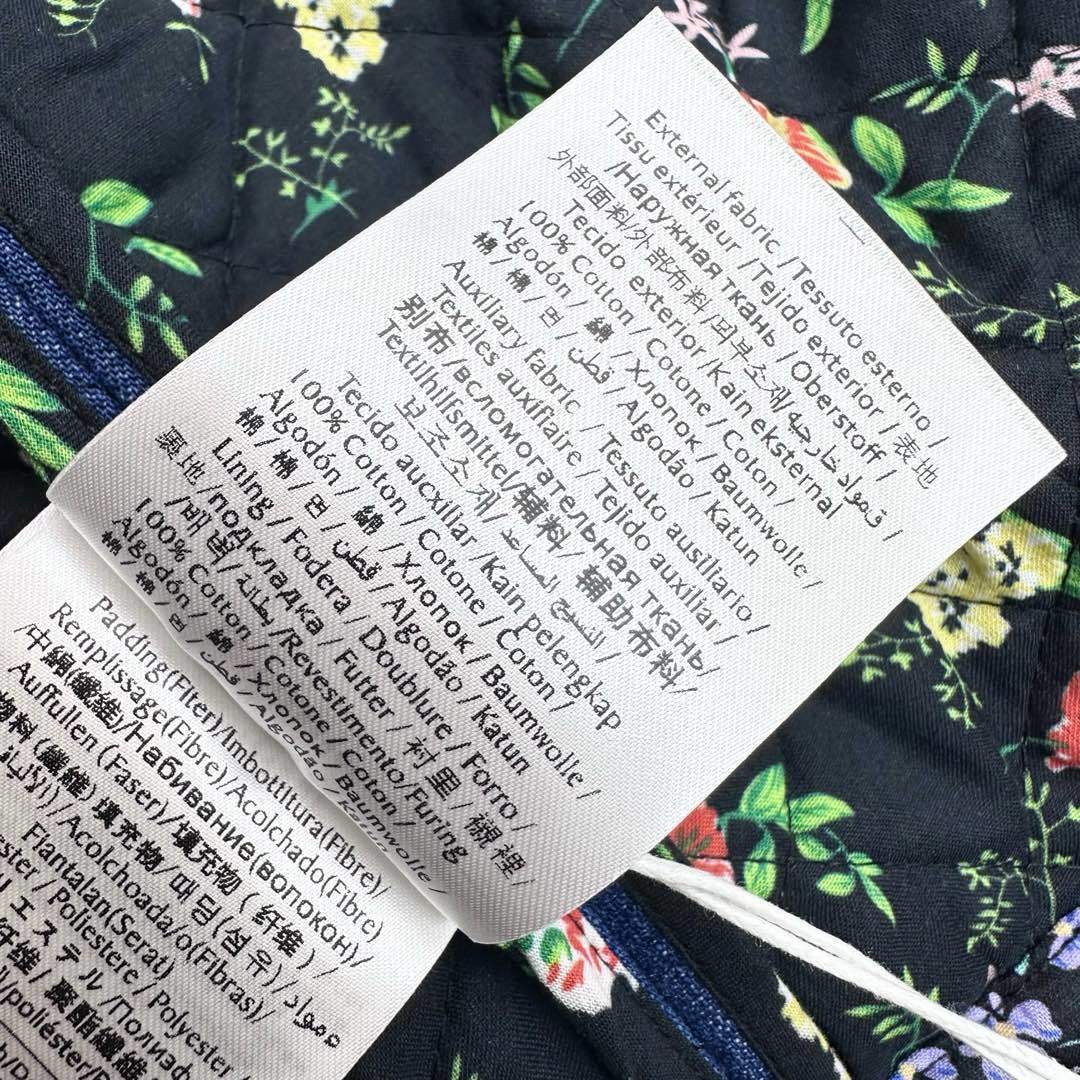 External fabric /Tessuto esterno /
Tissu extérieur /Tejido exterior / 表地
/Наружная ткань /Oberstoff /
外部面料/外部布料/외부소재/قمواد خارجية /
Tecido exterior/Kain eksternal
100% Cotton / Cotone / Coton /
Algodón / 綿 / Хлопок / Baumwolle /
棉 / 棉 / 면 / قطن / Algodão / Katun
Auxiliary fabric / Tessuto ausiliario /
Textiles auxifiaire / Tejido auxiliar /
别布/вспомогательная ткань/
Textilhilfsmittel/辅料/ 輔助布料/
보조소재/ النسيج المساعد /
Tecido aucxiliar /Kain pelengkap
100% Cotton / Cotone / Coton /
Algodón / 綿 / Хлопок / Baumwolle /
棉 / 棉 / 면 / قطن / Algodão / Katun
Lining / Fodera / Doublure / Forro /
裏地 /подкладка / Futter / 衬里 / 襯裡 /
/배접/ بطانة /Revestimento/Furing
100% Cotton / Cotone / Coton /
Algodón / 綿 / Хлопок / Baumwolle /
棉 / 棉 / 면 / قطن / Algodão / Katun
Padding(Filter)/Imbottitura(Fibre)/
Remplissage(Fibre)/Acolchado(Fibre)
/中綿(繊維)/Набивание(волокон)/
Auffullen (Faser)/填充物 ( 纤维 ) /
物料 (纖維) 填充物/패딩(섬유) /
/Acolchoada/o(Fibras)/
Fiantalan(Serat)
/ Poliestere / Polyester
エステル /Полиэф
纤维 / 聚酯纖維
/poliéster/